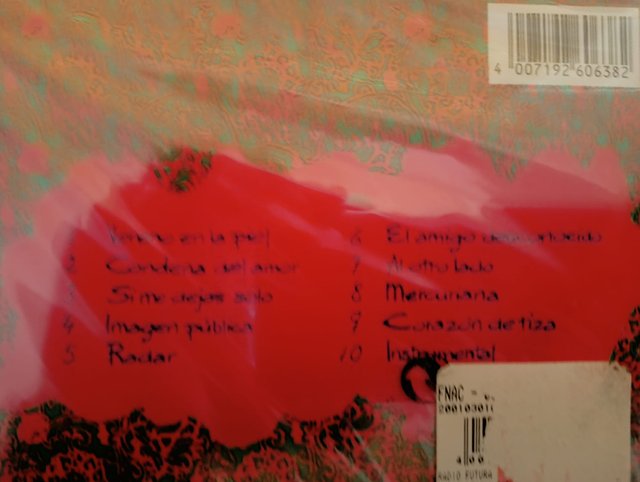 4 007192 606382
1 Veneno en la piel
2 Condena del amor
3 Si me dejas solo
4 Imagen pública
5 Radar
6 El amigo desconocido
7 Al otro lado
8 Mercuriana
9 Corazón de tiza
10 Instrumental
FNAC -
RADIO FUTURA